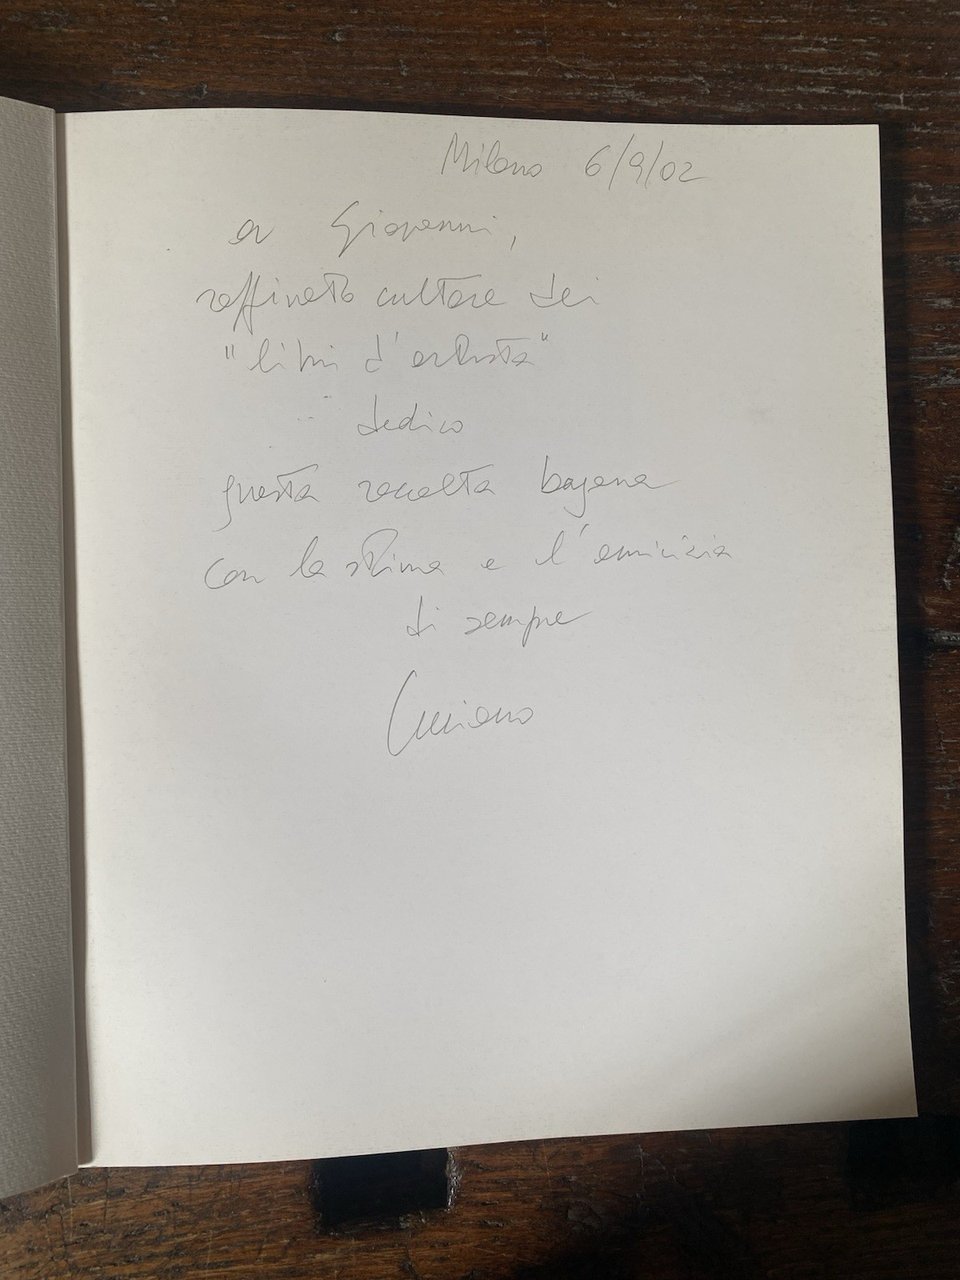 Milano 6/9/02
a Giovanni,
raffinato cultore dei
"libri d'artista"
dedico
questa raccolta bajana
con la stima e l'amicizia
di sempre
Luciano